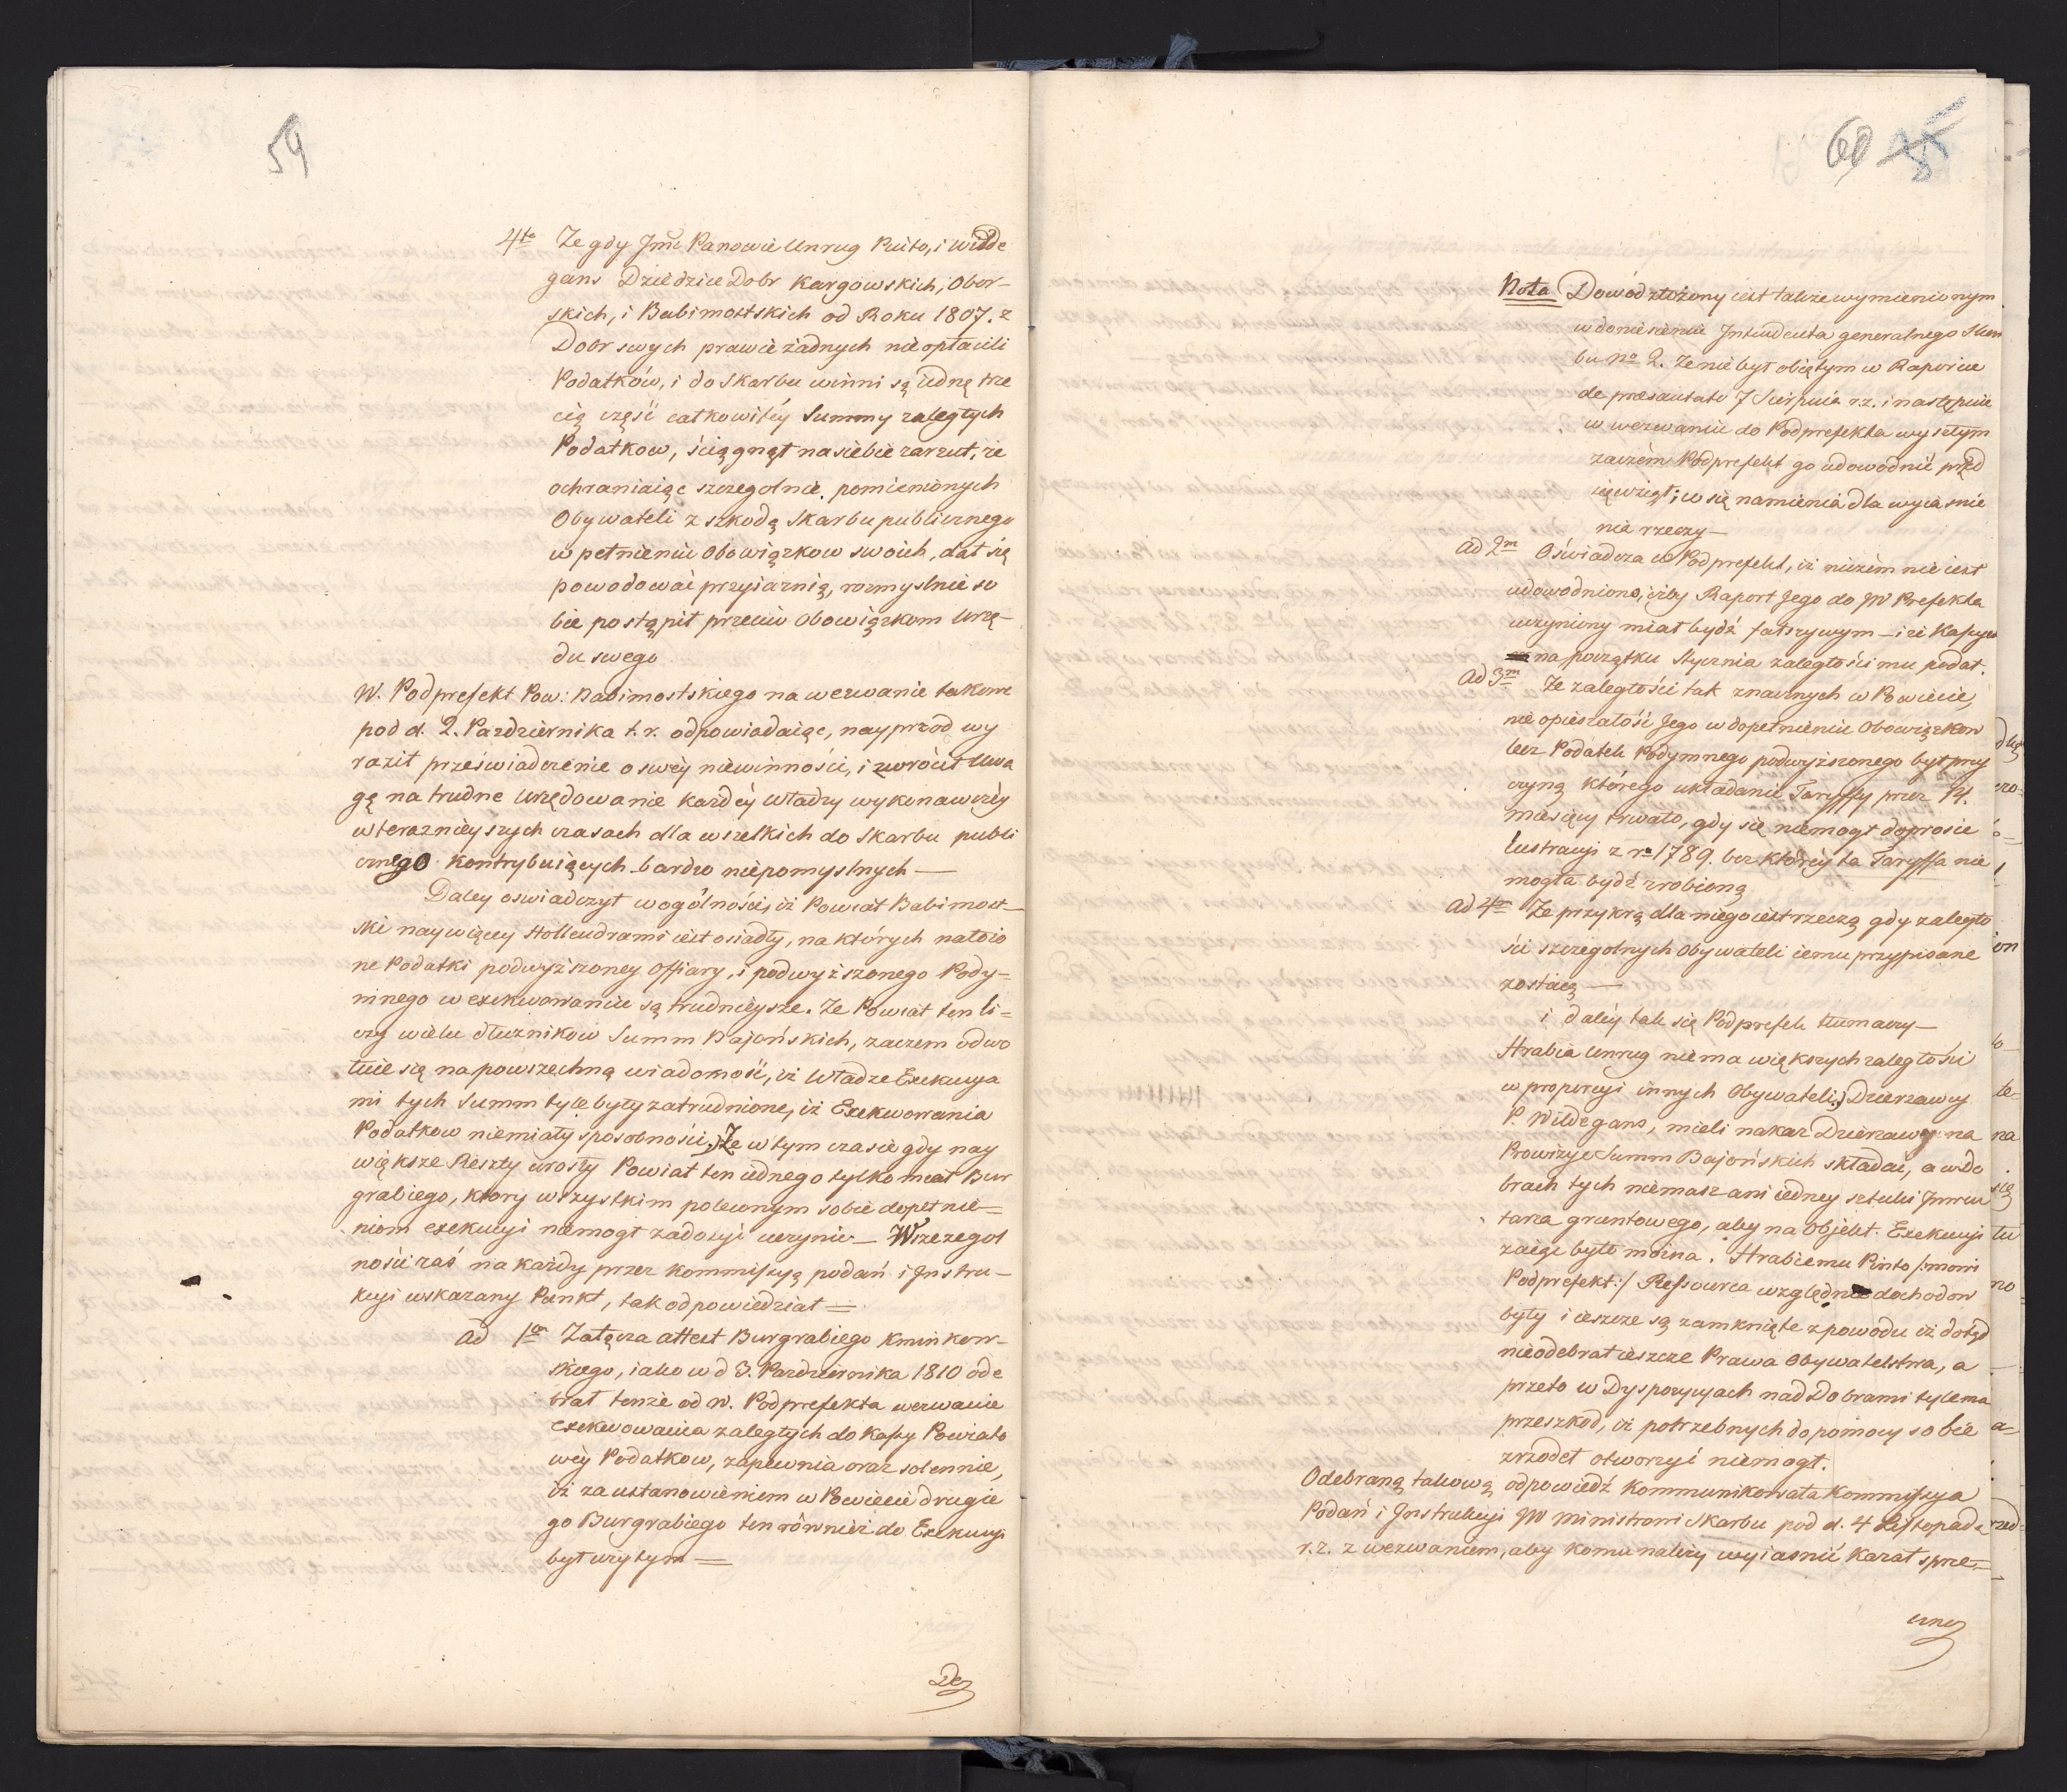 59
4to Ze gdy Jmć Panowie Unrug Pinto, i Wilde
gans Dziedzice Dobr Kargowskich, Obor-
skich, i Babimostskich od Roku 1807. z
Dobr swych prawie żadnych nieopłacili
Podatków, i do Skarbu winni są iednę trze
cią część całkowitéy Summy zaległych
Podatkow, ściągnął na siebie zarzut, że
ochraniaiąc szczegolnie pomienionych
Obywateli z szkodą Skarbu publicznego
w pełnieniu Obowiązkow swoich, dał się
powodować przyiaznią, rozmyslnie so
bie postąpił przeciw Obowiązkom Urzę-
du swego
W. Podprefekt Pow: Babimostskiego na wezwanie takowe
pod d. 2. Pazdziernika t. r. odpowiadaiąc, nayprzod wy
raził przeświadczenie o swéy niewinności, i zwrócił Uwa
gę na trudne Urzędowanie każdéy Władzy wykonawczéy
w teraznieyszych czasach dla wszelkich do Skarbu publi
cznego kontrybuiących bardzo niepomyslnych —
Daley oswiadczył wogólności, iż Powiat Babimost-
ski naywięcey Hollendrami iest osiadły, na których nałożo
ne Podatki podwyższoney Offiary, i podwyższonego Pody-
mnego w exekwowaniu są trudnieysze. Ze Powiat ten li=
czy wielu dłużnikow Summ Bajońskich, zaczem odwo
łuie się na powszechną wiadomość, iż Władze Exekucya
mi tych Summ tyle były zatrudnione, iż Exekwowania
Podatkow niemiały sposobności; Ze w tym czasie gdy nay
większe Reszty urosły Powiat ten iednego tylko miał Bur
grabiego, ktory wszystkim poleconym sobie dopełnie=
niom exekucyi niemogł zadosyć uczynić — Wszczegol
ności zaś na każdy przez Kommissyą podań i Instru-
kcyi wskazany Punkt, tak odpowiedział =
Ad 1m Załącza attest Burgrabiego Kminkow-
skiego, iako w d 3. Pazdziernika 1810 ode
brał tenże od W. Podprefekta wezwanie
exekwowania zaległych do Kassy Powiato
wéy Podatkow, zapewnia oraz solennie,
iż za ustanowieniem w Powiecie drugie
go Burgrabiego ten również do Exekucyi
był użytym =
De
60
Nota Dowód złożony iest także wymienionym
w doniesieniu Intendenta generalnego Skar
bu No 2. Ze nie był obiętym w Raporcie
de praesentato 7 Sierpnia r.z. i następnie
w wezwaniu do Podprefekta wysłtym
zaczém Podprefekt go udowodnić przed
sięwziął; co się namienia dla wyiasnie
nia rzeczy —
Ad 2m Oświadcza W Podprefekt, iż niczém nie iest
udowodniono, iżby Raport Jego do JW Prefekta
uczyniony miał bydź fałszywym — i że Kassyer
na początku Stycznia zaległości mu podał.
Ad 3m Ze zaległości tak znacznych w Powiecie,
nie opieszałość Jego w dopełnieniu Obowiązkow
lecz Podatek Podymnego podwyższonego był przy
czyną którego układanie Taryffy przez 14.
miesięcy trwało, gdy się niemogł doprosić
lustracyi z ru 1789. bez któréy ta Taryffa nie
mogła bydź zrobioną
Ad 4m Ze przykrą dla niego iest rzeczą gdy zaległo
ści szczegolnych Obywateli iemu przypisane
zostaią —
i daléy tak się Podprefekt tłumaczy —
Hrabia Unrug nie ma większych zaległości
w proporcyi innych Obywateli; Dzierzawcy
P. Wildegans, mieli nakaz Dzierzawę na
Prowizye Summ Bajońskich składać, a w Do
brach tych niemasz ani iedney sztuki Inwen
tarza gruntowego, aby na Objekt Exekucyi
zaiąć było można. Hrabiemu Pinto /:mowi
Podprefekt:/ Ressourca względnie dochodow
były i ieszcze są zamknięte z powodu iż dotąd
nieodebrał ieszcze Prawa Obywatelstwa, a
przeto w Dyspozycyach nad Dobrami tyle ma
przeszkod, iż potrzebnych do pomocy sobie
zrzodeł otworzyć niemogł.
Odebraną takową odpowiedź Kommunikowała Kommissya
Podań i Instrukcyi JW Ministrowi Skarbu pod d. 4 Listopada
r.z. z wezwaniem, aby komu należy wyiasnić kazał sprze=
czne